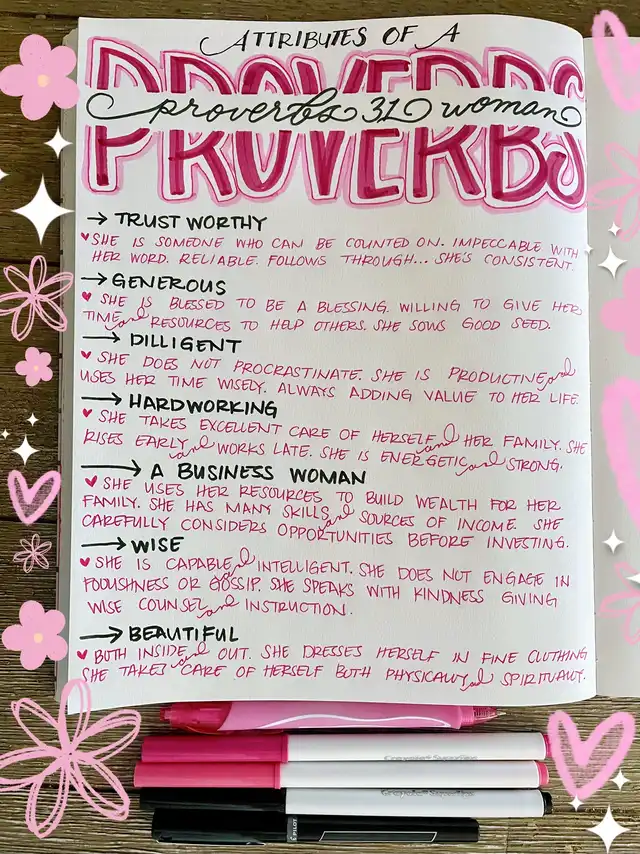 ATTRIBUTES OF A
PROVERBS
proverbs 31 woman
→ TRUST WORTHY
♥ SHE IS SOMEONE WHO CAN BE COUNTED ON. IMPECCABLE WITH
HER WORD. RELIABLE. FOLLOWS THROUGH... SHE'S CONSISTENT.
→ GENEROUS
♥ SHE IS BLESSED TO BE A BLESSING. WILLING TO GIVE HER
TIME and RESOURCES TO HELP OTHERS. SHE SOWS GOOD SEED.
→ DILLIGENT
♥ SHE DOES NOT PROCRASTINATE. SHE IS PRODUCTIVE and
USES HER TIME WISELY. ALWAYS ADDING VALUE TO HER LIFE.
→ HARDWORKING
♥ SHE TAKES EXCELLENT CARE OF HERSELF and HER FAMILY. SHE
RISES EARLY and WORKS LATE. SHE IS ENERGETIC and STRONG.
→ A BUSINESS WOMAN
♥ SHE USES HER RESOURCES TO BUILD WEALTH FOR HER
FAMILY. SHE HAS MANY SKILLS and SOURCES OF INCOME. SHE
CAREFULLY CONSIDERS OPPORTUNITIES BEFORE INVESTING.
→ WISE
♥ SHE IS CAPABLE and INTELLIGENT. SHE DOES NOT ENGAGE IN
FOOLISHNESS OR GOSSIP. SHE SPEAKS WITH KINDNESS GIVING
WISE COUNSEL and INSTRUCTION.
→ BEAUTIFUL
♥ BOTH INSIDE and OUT. SHE DRESSES HERSELF IN FINE CLOTHING
SHE TAKES CARE OF HERSELF BOTH PHYSICALLY and SPIRITUALLY.
Crayola SuperTips
Crayola SuperTips
PILOT